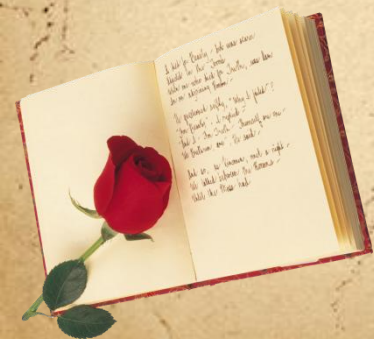 I died for Beauty - but was scarce
Adjusted in the Tomb
When one who died for Truth, was lain
In an adjoining Room -
He questioned softly, "Why I failed"?
"For Beauty", I replied -
"And I - for Truth - Themself are one -
We Bretheren, are", He said -
And so, as Kinsmen, met a Night -
We talked between the Rooms -
Until the Moss had